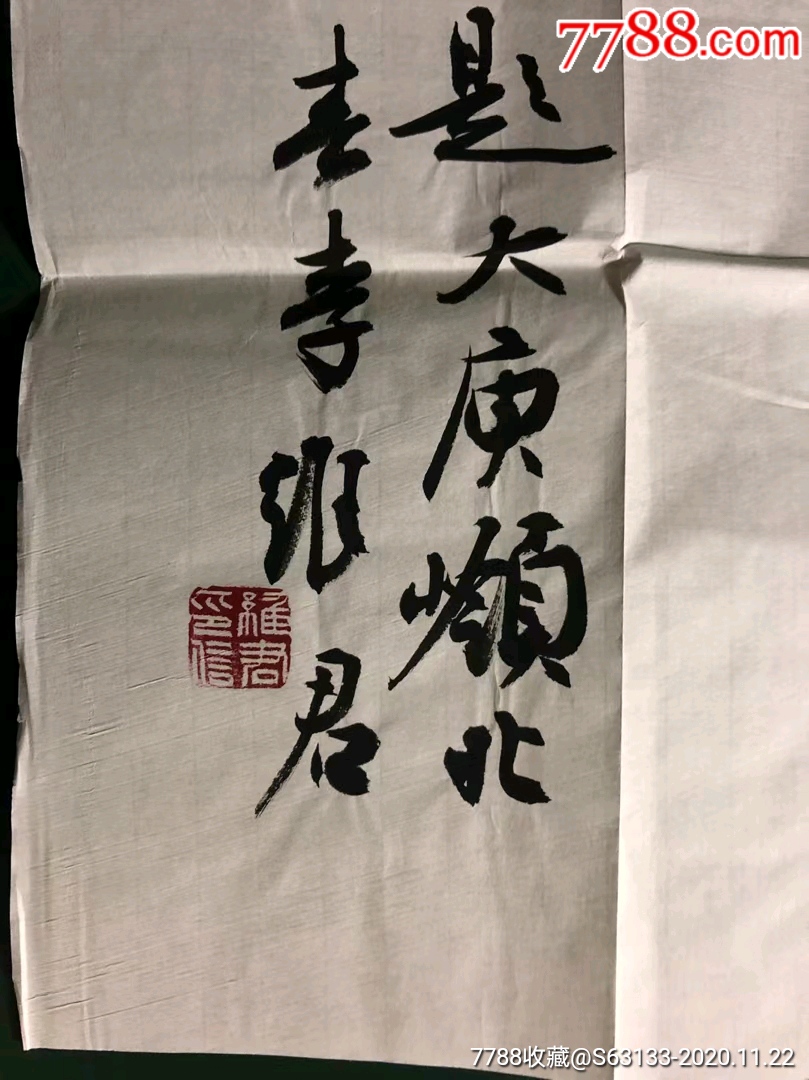 7788.com
題大庾嶺北
李維君
維君印信
7788收藏@S63133-2020.11.22